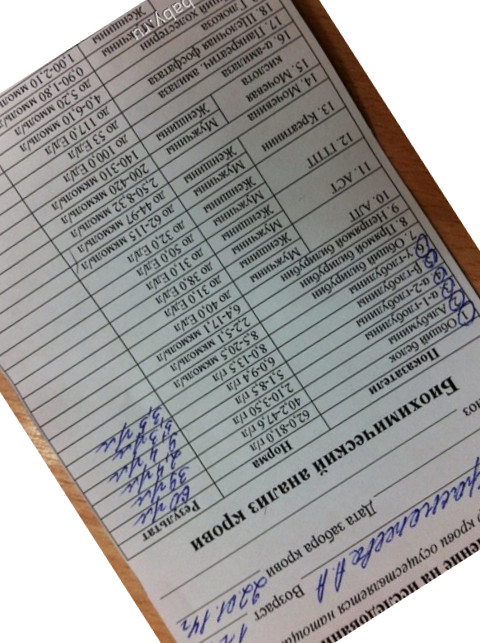 baby.ru
крови осуществляется натощак
Возраст
Дата забора крови 22.01.14г
Биохимический анализ крови
Показатели Норма Результат
1. Общий белок 62,0-81,0 г/л
Альбумины 40,2-47,6 г/л
α-1-глобулины 2,10-3,50 г/л
α-2-глобулины 5,1-8,5 г/л
β-глобулины 6,0-9,4 г/л
γ-глобулины 8,0-13,5 г/л
7. Общий билирубин 8,5-20,5 мкмоль/л
8. Прямой билирубин 2,2-5,1 мкмоль/л
9. Непрямой билирубин 6,4-17,1 мкмоль/л
10. АЛТ Мужчины до 40,0 Ед/л
Женщины до 31,0 Ед/л
11. АСТ Мужчины до 38,0 Ед/л
Женщины до 31,0 Ед/л
12. ГГТП Мужчины до 50,0 Ед/л
Женщины до 32,0 Ед/л
13. Креатинин Мужчины до 62-115 мкмоль/л
Женщины до 44-97 мкмоль/л
14. Мочевина 2,50-8,32 ммоль/л
15. Мочевая кислота Мужчины 200-420 мкмоль/л
Женщины 140-310 мкмоль/л
16. α-амилаза до 100,0 Ед/л
17. Панкреатич. амилаза до 53 Ед/л
Щелочная фосфатаза до 117,0 Ед/л
18. Глюкоза 4,0-6,10 ммоль/л
холестерин до 5,20 ммоль/л
Мужчины 0,90-1,80 ммоль/л
Женщины 1,00-2,10 ммоль